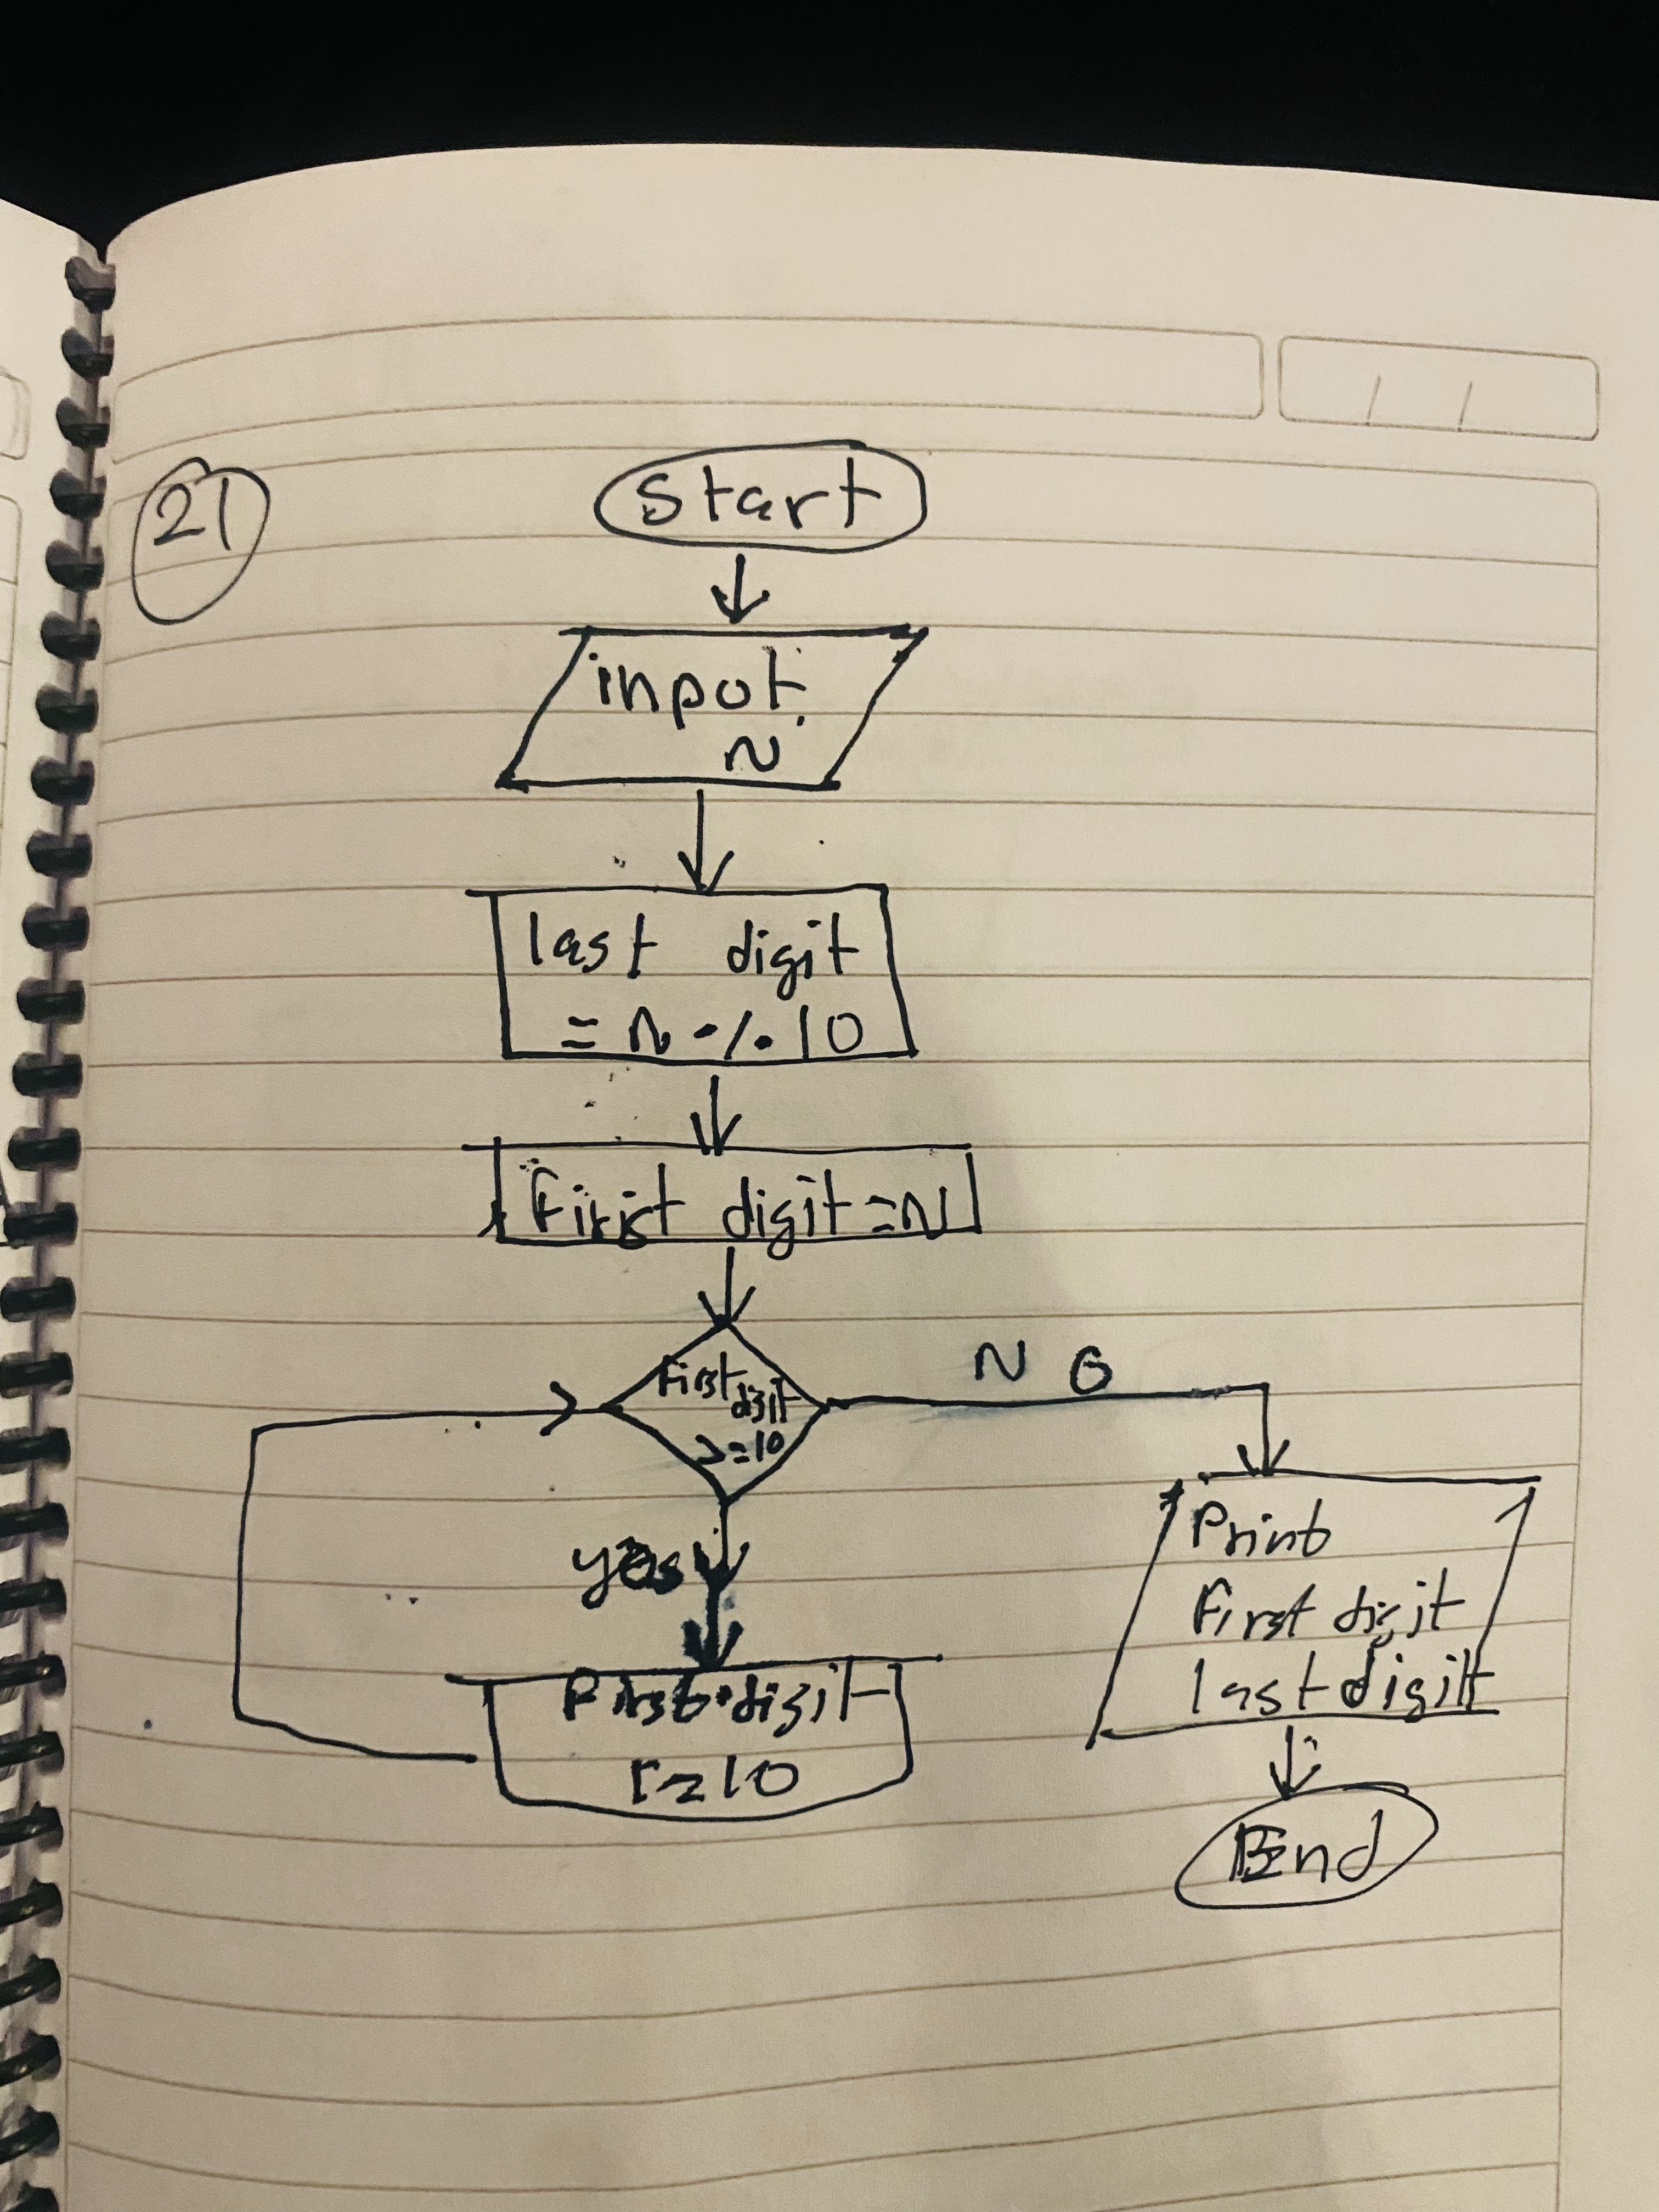 21
Start
input
N
last digit
= N % 10
First digit = N
First
digit
>=10
NO
yes
First digit
Print
First digit
last digit
End